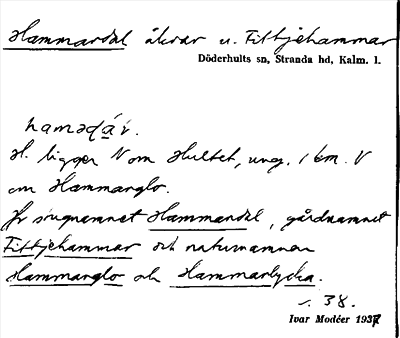 Hammardal åkrar u. Fittjehammar
Döderhults sn, Stranda hd, Kalm. l.
H. ligger N om Hultet, ung. 1 km. V
om Hammarglo.
Jfr sjögnamnet Hammardal, gårdnamnet
Fittjehammar och naturnamnen
Hammarglo och Hammarlycka.
s. 38.
Ivar Modéer 1937